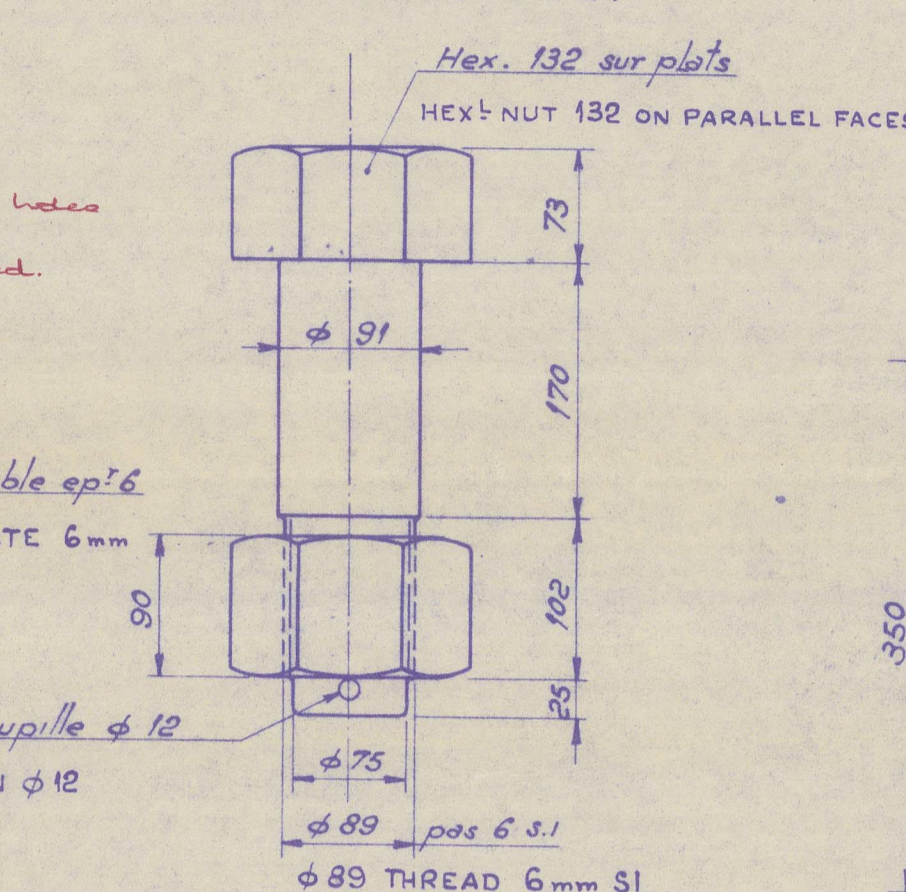 Hex. 132 sur plats
HEXL NUT 132 ON PARALLEL FACES
holes
73
φ 91
170
epr 6
6mm
90
102
350
25
φ 12
φ12
φ75
φ89 pas 6 s.1
φ89 THREAD 6mm S1